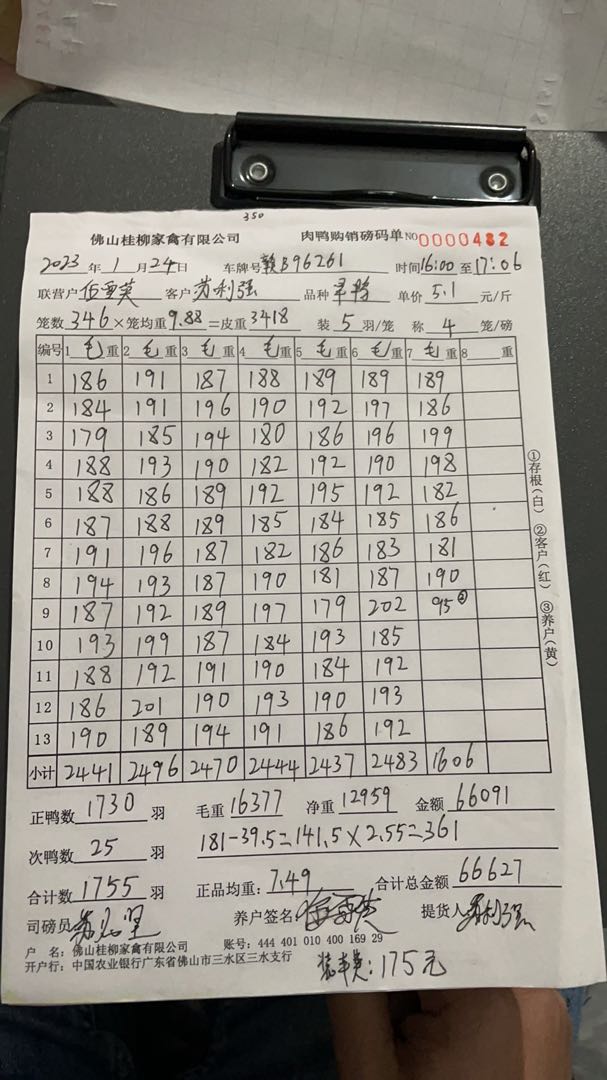 350
佛山桂柳家禽有限公司 肉鸭购销磅码单 NO 0000482
2023年1月24日 车牌号 赣B96261 时间16:00至17:06
联营户 伍雪英 客户 苏利强 品种 单价 5.1 元/斤
笼数346×笼均重9.88=皮重3418 装5羽/笼 称4笼/磅
编号 1毛重 2毛重 3毛重 4毛重 5毛重 6毛重 7毛重 8 重
1 186 191 187 188 189 189 189
2 184 191 196 190 192 197 186
3 179 185 194 180 186 196 199
4 188 193 190 182 192 190 198
5 188 186 189 192 195 192 182
6 187 188 189 185 184 185 186
7 191 196 187 182 186 183 181
8 194 193 187 190 181 187 190
9 187 192 189 197 179 202 95②
10 193 199 187 184 193 185
11 188 192 191 190 184 192
12 186 201 190 193 190 193
13 190 189 194 191 186 192
小计 2441 2496 2470 2444 2437 2483 1606
正鸭数 1730 羽 毛重 16377 净重 12959 金额 66091
次鸭数 25 羽 181-39.5=141.5×2.55=361
合计数 1755 羽 正品均重:7.49 合计总金额 66627
司磅员 养户签名 伍雪英 提货人 苏利强
户 名:佛山桂柳家禽有限公司 账号:444 401 010 400 169 29
开户行:中国农业银行广东省佛山市三水区三水支行
装车费:175元
①存根(白) ②客户(红) ③养户(黄)